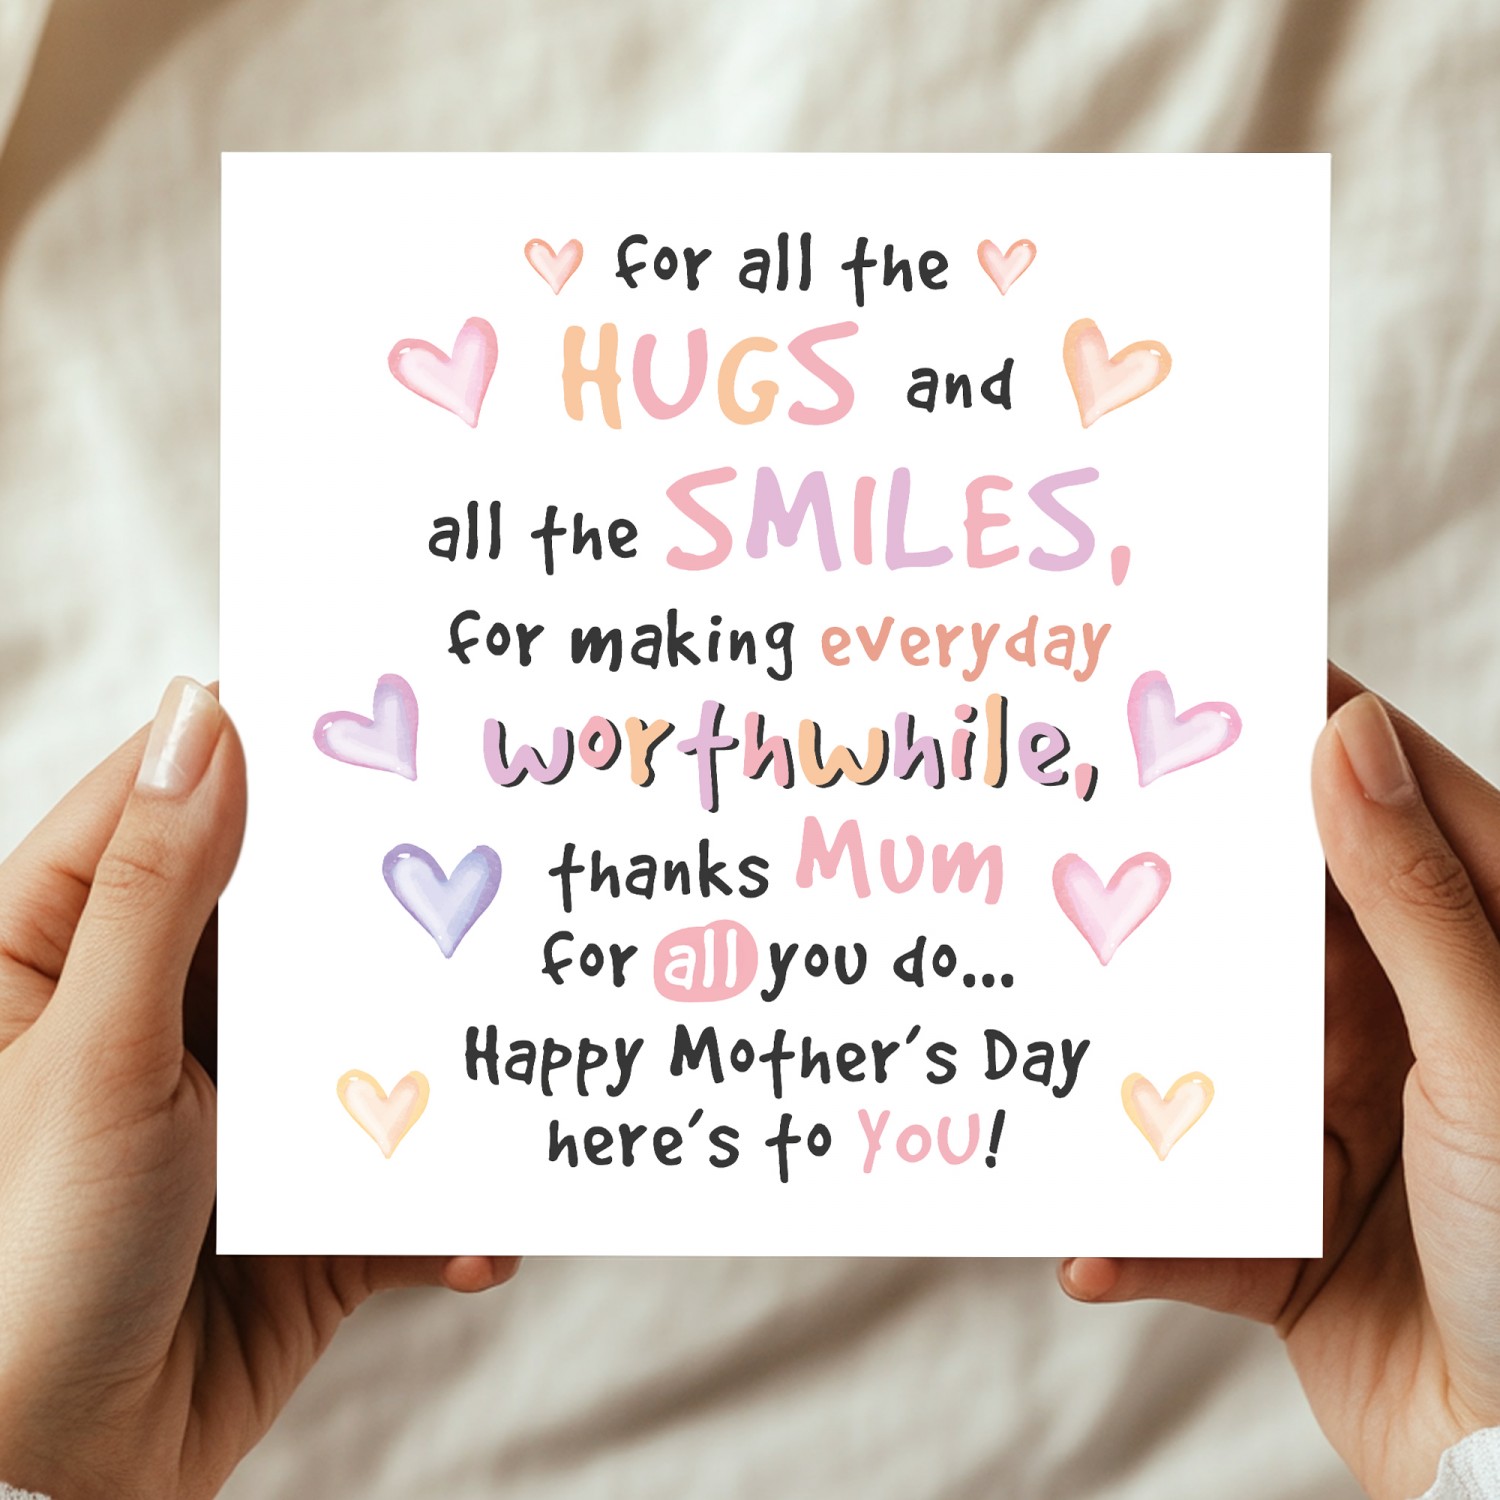 for all the
HUGS and
all the SMILES,
for making everyday
worthwhile,
thanks Mum
for all you do...
Happy Mother's Day
here's to YOU!